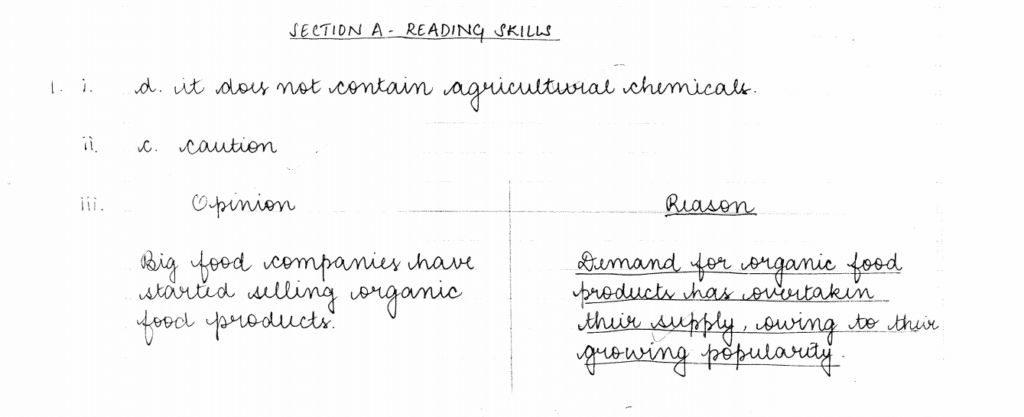 SECTION A - READING SKILLS
1. i. d. it does not contain agricultural chemicals.
ii. c. caution
iii. Opinion Reason
Big food companies have
started selling organic
food products.
Demand for organic food
products has overtaken
their supply, owing to their
growing popularity.